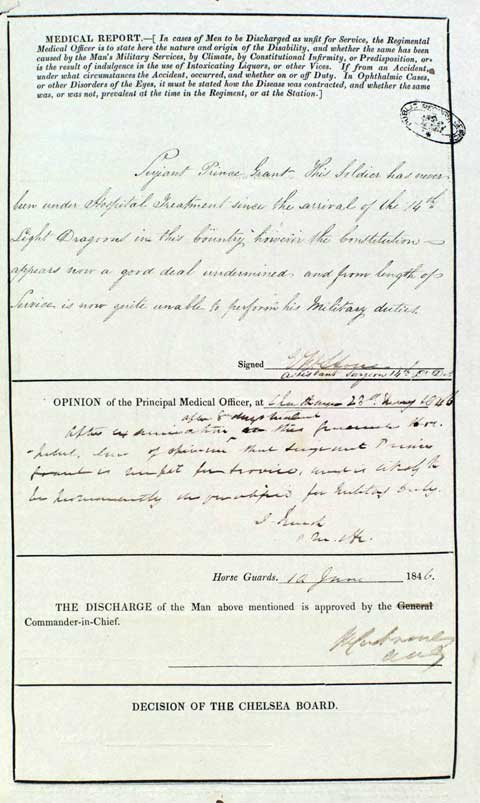 MEDICAL REPORT.—[ In cases of Men to be Discharged as unfit for Service, the Regimental
Medical Officer is to state here the nature and origin of the Disability, and whether the same has been
caused by the Man's Military Services, by Climate, by Constitutional Infirmity, or Predisposition, or
is the result of indulgence in the use of Intoxicating Liquors, or other Vices. If from an Accident,
under what circumstances the Accident, occurred, and whether on or off Duty. In Ophthalmic Cases,
or other Disorders of the Eyes, it must be stated how the Disease was contracted, and whether the same
was, or was not, prevalent at the time in the Regiment, or at the Station.]
Serjeant Prince Grant. This Soldier has never
been under Hospital Treatment since the arrival of the 14th
Light Dragoons in this Country, however the Constitution
appears now a good deal undermined and from length of
Service is now quite unable to perform his Military duties.
Signed
Assistant Surgeon 14th
OPINION of the Principal Medical Officer, at 1846
After examination
opinion that Sergeant
Grant is unfit for service, and is likely to
be permanently for Military Duty.
Horse Guards. 10 June 1846.
THE DISCHARGE of the Man above mentioned is approved by the General
Commander-in-Chief.
DECISION OF THE CHELSEA BOARD.